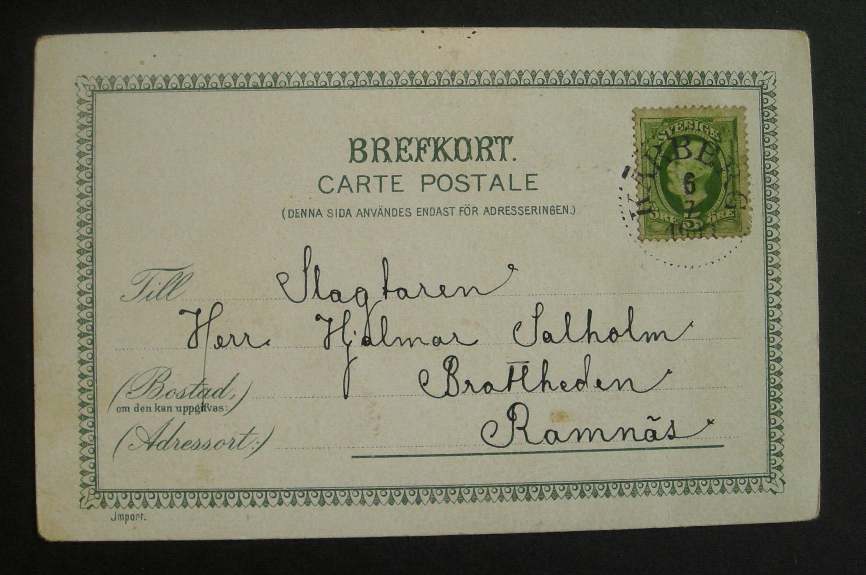 BREFKORT.
CARTE POSTALE
(DENNA SIDA ANVÄNDES ENDAST FÖR ADRESSERINGEN.)
SVERIGE
6
7
Till Slagtaren
Herr. Hjalmar Salholm
(Bostad, Brattheden
om den kan uppgifvas:)
(Adressort:) Ramnäs
Import.